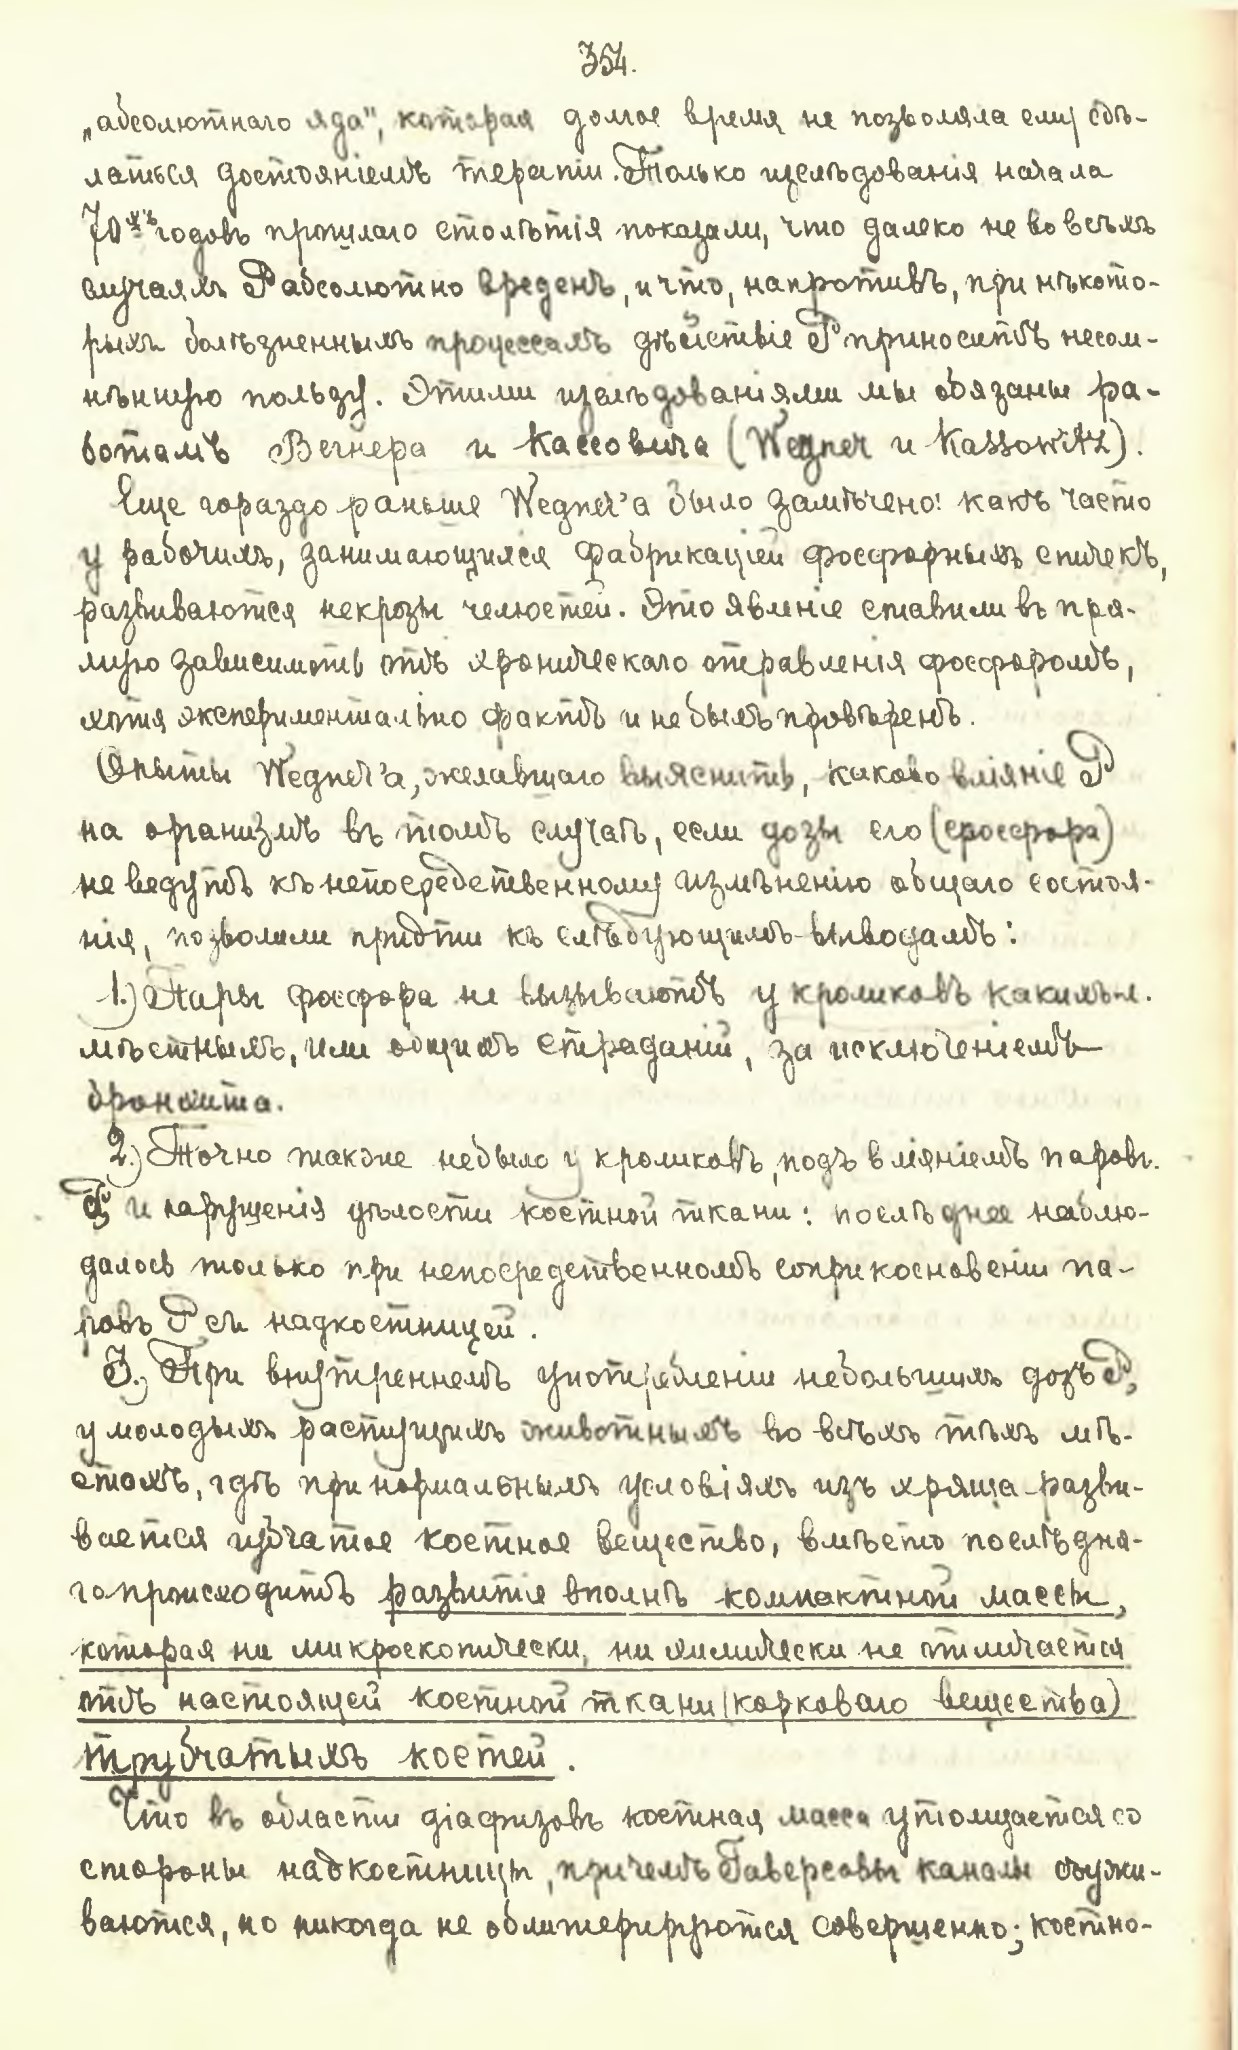 354.
„абсолютнаго яда", которая долгое время не позволяла ему сдѣ-
латься достояніемъ терапіи. Только изслѣдованія начала
70ыхъ годовъ прошлаго столѣтія показали, что далеко не во всѣхъ
случаяхъ Р абсолютно вреденъ, и что, напротивъ, при нѣкото-
рыхъ болѣзненныхъ процессахъ дѣйствіе Р приноситъ несом-
нѣнную пользу. Этими изслѣдованіями мы обязаны ра-
ботамъ Вегнера и Кассовича (Wegner и Kassowitz).
Еще гораздо раньше Wegner'а было замѣчено: какъ часто
у рабочихъ, занимающихся фабрикаціей фосфорныхъ спичекъ,
развиваются некрозы челюстей. Это явленіе ставили въ пря-
мую зависимоть отъ хроническаго отравленія фосфоромъ,
хотя экспериментально фактъ и не былъ провѣренъ.
Опыты Wegner'а, желавшаго выяснить, каково вліяніе Р
на организмъ въ томъ случаѣ, если дозы его (фосфора)
не ведутъ къ непосредственному измѣненію общаго состоя-
нія, позволили придти къ слѣдующимъ выводамъ:
1.) Пары фосфора не вызываютъ у кроликовъ какихъ-л.
мѣстныхъ, или общихъ страданій, за исключеніемъ
бронхита.
2.) Точно также не было у кроликовъ, подъ вліяніемъ паровъ
Р, и нарушенія цѣлости костной ткани: послѣднее наблю-
далось только при непосредственномъ соприкосновеніи па-
ровъ Р съ надкостницей.
3.) При внутреннемъ употребленіи небольшихъ дозъ Р,
у молодыхъ растущихъ животныхъ во всѣхъ тѣхъ мѣ-
стахъ, гдѣ при нормальныхъ условіяхъ изъ хряща разви-
вается губчатое костное вещество, вмѣсто послѣдня-
го происходитъ развитіе вполнѣ компактной массы,
которая ни микроскопически, ни химически не отличается
отъ настоящей костной ткани (корковаго вещества)
трубчатыхъ костей.
Что въ области діафизовъ костная масса утолщается со
стороны надкостницы, причемъ Гаверсовы каналы съужи-
ваются, но никогда не облитерируются совершенно; костно-